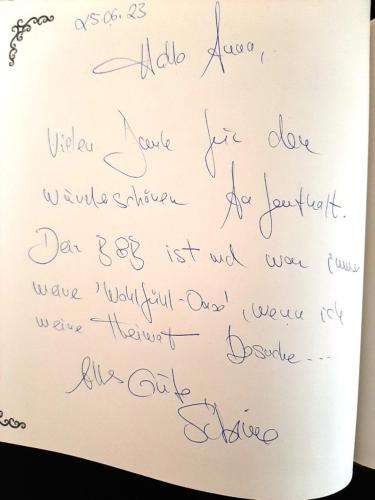 25.06.23
Hallo Anna,
Vielen Dank für den
wunderschönen Aufenthalt.
Dein B&B ist und war immer
meine 'Wohlfühl-Oase', wenn ich
meine Heimat besuche...
Alles Gute,